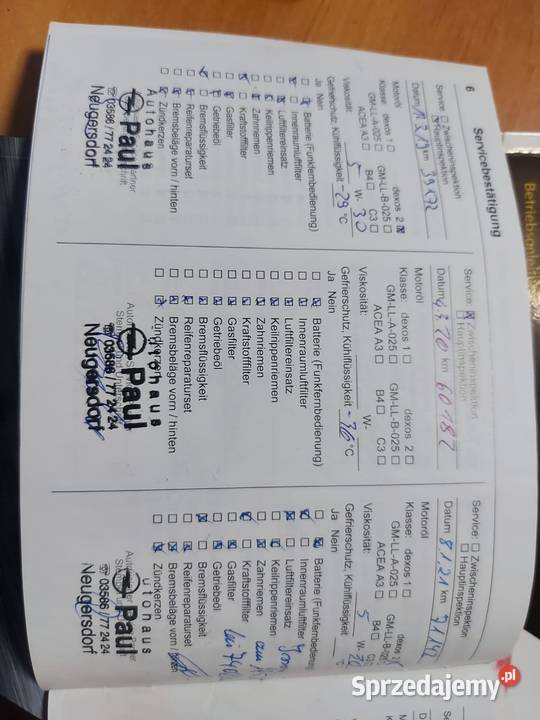 6
Servicebestätigung
Service: Zwischeninspektion
Hauptinspektion
Datum km 39172
Motoröl
Klasse: dexos 1 dexos 2
GM-LL-A-025 GM-LL-B-025
ACEA A3 B4 C3
Viskosität: 5 W- 30
Gefrierschutz, Kühlflüssigkeit -29 °C
Ja Nein
Batterie (Funkfernbedienung)
Innenraumluftfilter
Luftfiltereinsatz
Keilrippenriemen
Zahnriemen
Kraftstofffilter
Gasfilter
Getriebeöl
Bremsflüssigkeit
Reifenreparaturset
Bremsbeläge vorn / hinten
Zündkerzen
Autohaus
Paul
☎ 03586 / 77 24 24
Neugersdorf
Service: Zwischeninspektion
Hauptinspektion
Datum km 60182
Motoröl
Klasse: dexos 1 dexos 2
GM-LL-A-025 GM-LL-B-025
ACEA A3 B4 C3
Viskosität: W-
Gefrierschutz, Kühlflüssigkeit -36 °C
Ja Nein
Batterie (Funkfernbedienung)
Innenraumluftfilter
Luftfiltereinsatz
Keilrippenriemen
Zahnriemen
Kraftstofffilter
Gasfilter
Getriebeöl
Bremsflüssigkeit
Reifenreparaturset
Bremsbeläge vorn / hinten
Zündkerzen
Autohaus
Paul
☎ 03586 / 77 24 24
Neugersdorf
Service: Zwischeninspektion
Hauptinspektion
Datum 8.1.21 km
Motoröl
Klasse: dexos 1 dexos 2
GM-LL-A-025 GM-LL-B-025
ACEA A3 B4
Viskosität: 5 W-
Gefrierschutz, Kühlflüssigkeit
Ja Nein
Batterie (Funkfernbedienung)
Innenraumluftfilter
Luftfiltereinsatz
Keilrippenriemen
Zahnriemen
Kraftstofffilter
Gasfilter
Getriebeöl
Bremsflüssigkeit
Reifenreparaturset
Bremsbeläge vorn
Zündkerzen
utohaus
Paul
☎ 03586 / 77 24 24
Neugersdorf
Sprzedajemy.pl